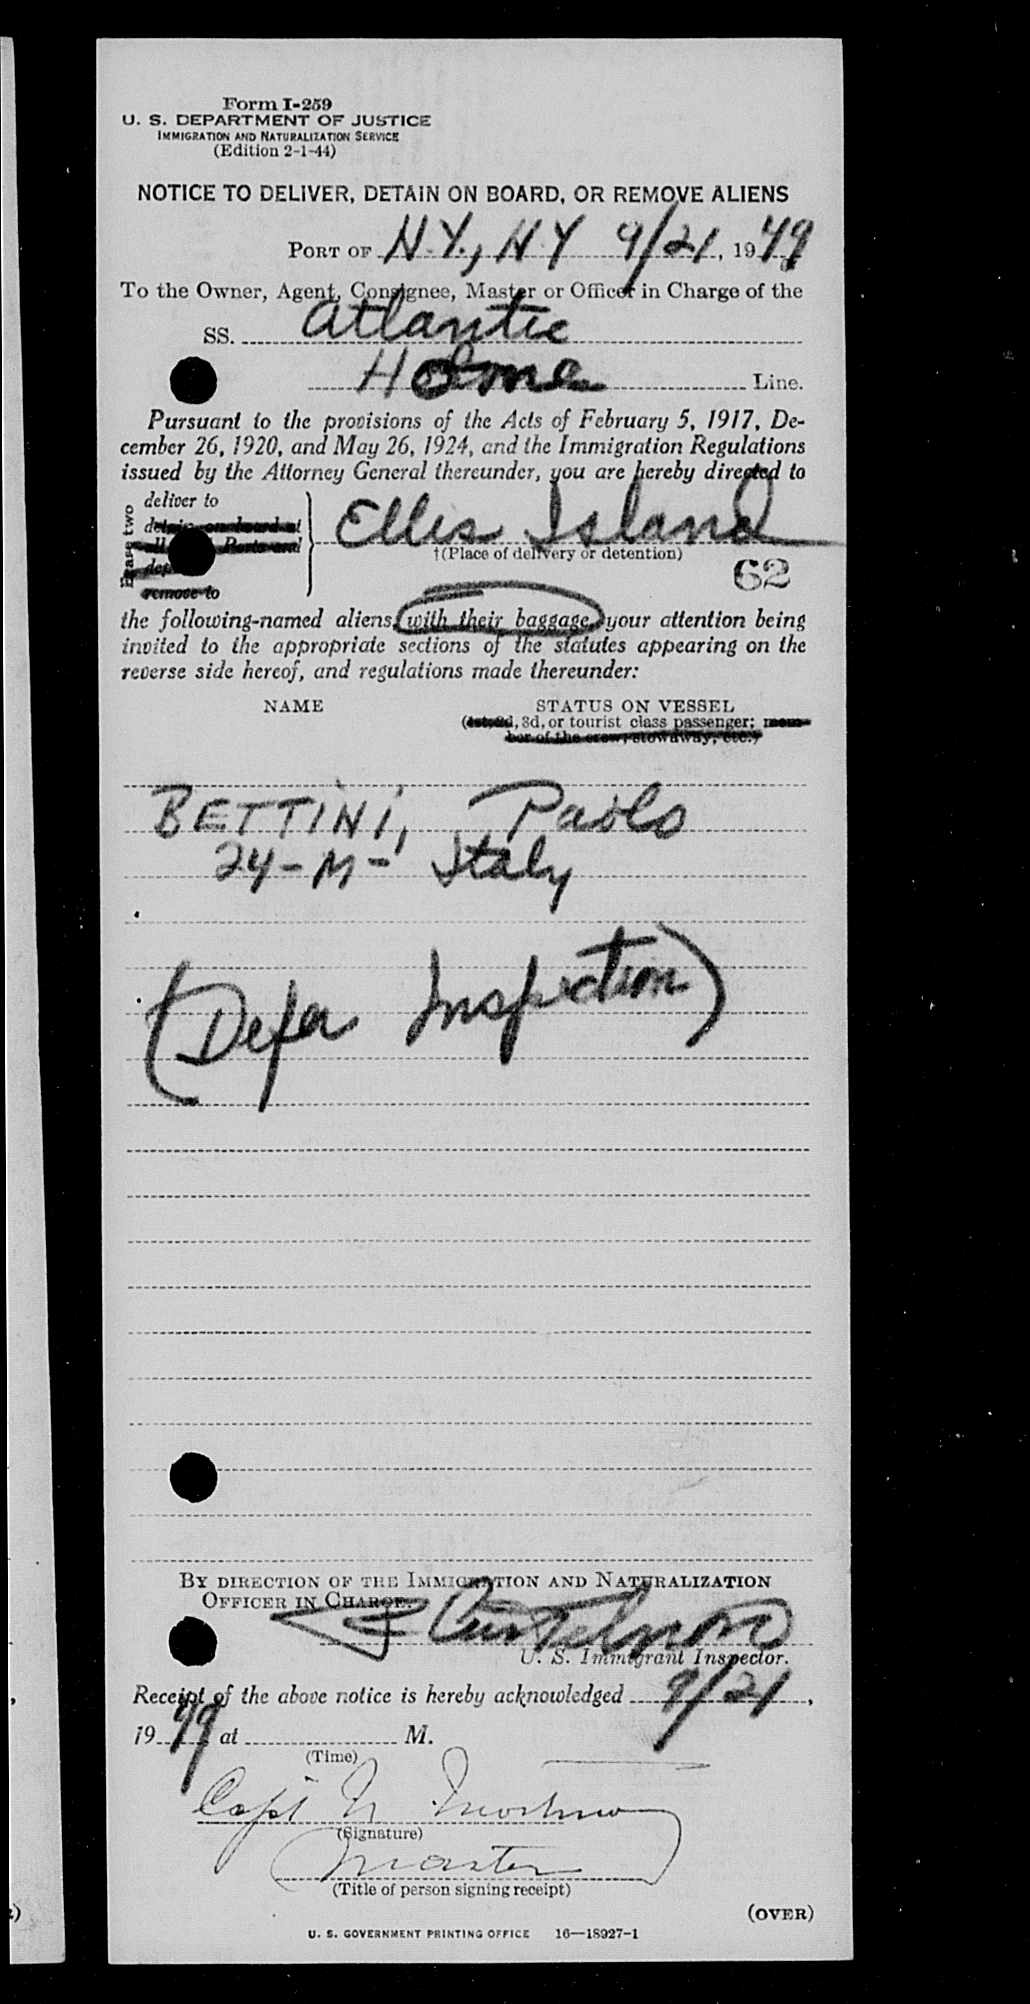 Form I-259
U. S. DEPARTMENT OF JUSTICE
IMMIGRATION AND NATURALIZATION SERVICE
(Edition 2-1-44)
NOTICE TO DELIVER, DETAIN ON BOARD, OR REMOVE ALIENS
PORT OF N.Y., N.Y 9/21, 1949
To the Owner, Agent, Consignee, Master or Officer in Charge of the
SS. Atlantic
Home Line.
Pursuant to the provisions of the Acts of February 5, 1917, De-
cember 26, 1920, and May 26, 1924, and the Immigration Regulations
issued by the Attorney General thereunder, you are hereby directed to
Erase two
deliver to
detain on board at
all Ports and
remove to
Ellis Island
†(Place of delivery or detention)
62
the following-named aliens, with their baggage, your attention being
invited to the appropriate sections of the statutes appearing on the
reverse side hereof, and regulations made thereunder:
NAME STATUS ON VESSEL
(1st, 2d, 3d, or tourist class passenger; mem-
ber of the crew, stowaway, etc.)
BETTINI, Paolo
24-M- Italy
(Defer Inspection)
BY DIRECTION OF THE IMMIGRATION AND NATURALIZATION
OFFICER IN CHARGE.
U. S. Immigrant Inspector.
Receipt of the above notice is hereby acknowledged 9/21,
1949 at M.
(Time)
Capt N
(Signature)
Master
(Title of person signing receipt)
(OVER)
U. S. GOVERNMENT PRINTING OFFICE 16—18927-1